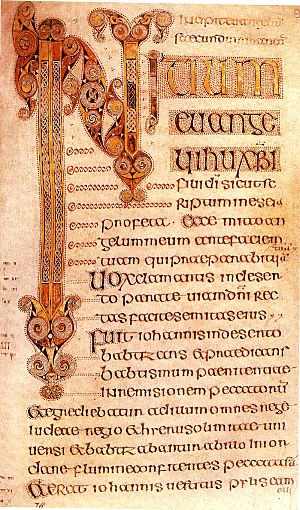 secundum
INITIUM
euange
lii ihu xpi
fili di sicut sc
riptum in esei
profeta ecce mitto an
gelum meum ante faciem
tuam qui
Uox clamantis in deser
to parate uiam dni rec
tas facite semitas eius
Fuit iohannis in deserto
babtizans et praedicans
babtismum paenitentiae
in remisionem peccatorum
et egrediebatur ad illum omnes
iudeae regio et uni
uersi et babtizabantur ab illo in ior
dane flumine confitentes peccata sua
Et erat iohannis uestitus pilis cam
eli